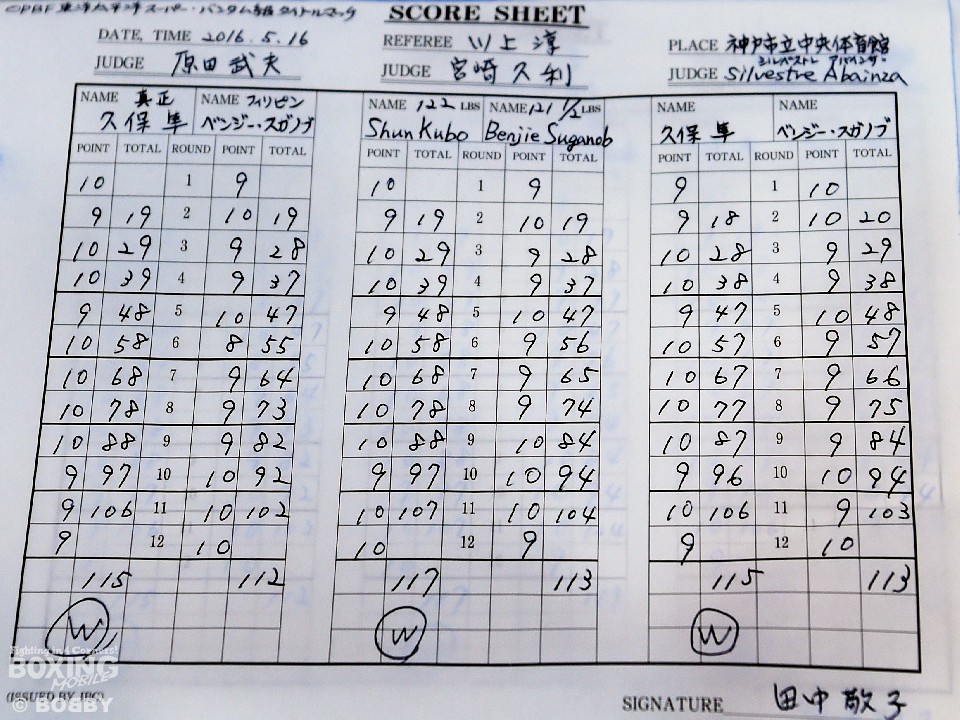 OPBF 東洋太平洋スーパー・バンタム級タイトルマッチ
SCORE SHEET
DATE, TIME 2016. 5. 16
REFEREE 川上 淳
PLACE 神戸市立中央体育館
JUDGE 原田武夫
JUDGE 宮崎久利
シルベストレ アバインザ
JUDGE Silvestre Abainza
NAME 真正 NAME フィリピン
久保 隼 ベンジー・スガノブ
POINT TOTAL ROUND POINT TOTAL
10 1 9
9 19 2 10 19
10 29 3 9 28
10 39 4 9 37
9 48 5 10 47
10 58 6 8 55
10 68 7 9 64
10 78 8 9 73
10 88 9 9 82
9 97 10 10 92
9 106 11 10 102
9 12 10
115 112
W
NAME 122 LBS NAME 121 1/2 LBS
Shun Kubo Benjie Suganob
POINT TOTAL ROUND POINT TOTAL
10 1 9
9 19 2 10 19
10 29 3 9 28
10 39 4 9 37
9 48 5 10 47
10 58 6 9 56
10 68 7 9 65
10 78 8 9 74
10 88 9 10 84
9 97 10 10 94
10 107 11 10 104
10 12 9
117 113
W
NAME NAME
久保 隼 ベンジー・スガノブ
POINT TOTAL ROUND POINT TOTAL
9 1 10
9 18 2 10 20
10 28 3 9 29
10 38 4 9 38
9 47 5 10 48
10 57 6 9 57
10 67 7 9 66
10 77 8 9 75
10 87 9 9 84
9 96 10 10 94
10 106 11 9 103
9 12 10
115 113
W
Fighting in 4 Corners!
BOXING
MOBILE
© BOBBY
(ISSUED BY JBC)
SIGNATURE 田中敬子